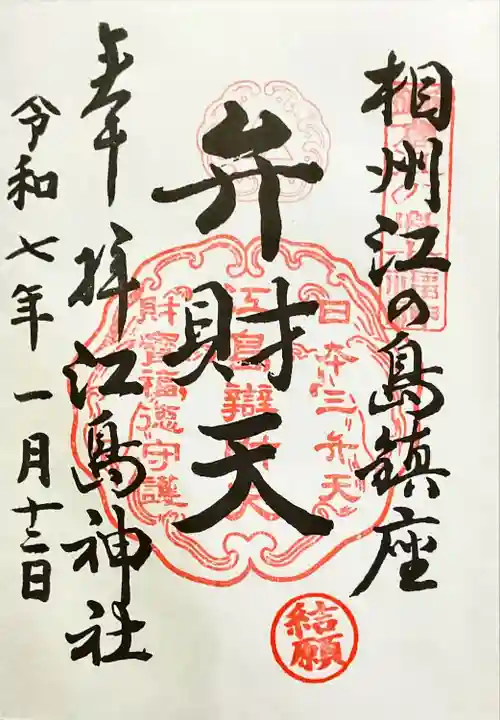 相州江の島鎮座
弁財天
奉拝 江島神社
令和七年一月十二日
日本三弁天
江島辯財天
財寶福徳守護
結願